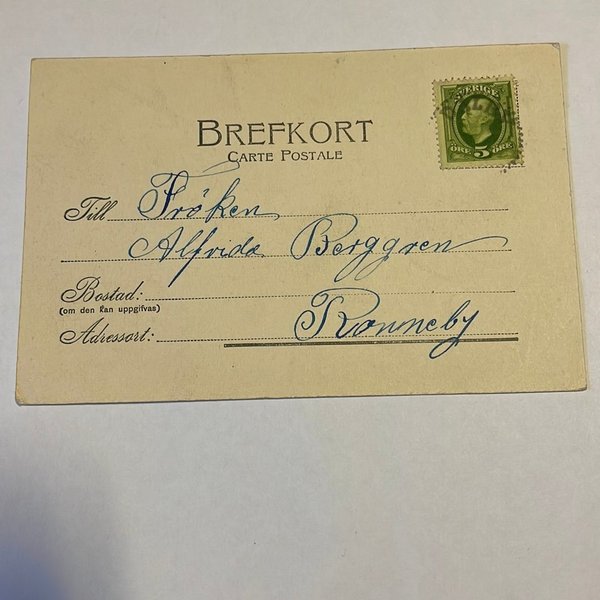 SVERIGE
ÖRE 5 ÖRE
BREFKORT
CARTE POSTALE
Till Fröken
Alfrida Berggren
Bostad:
(om den kan uppgifvas)
Ronneby
Adressort: